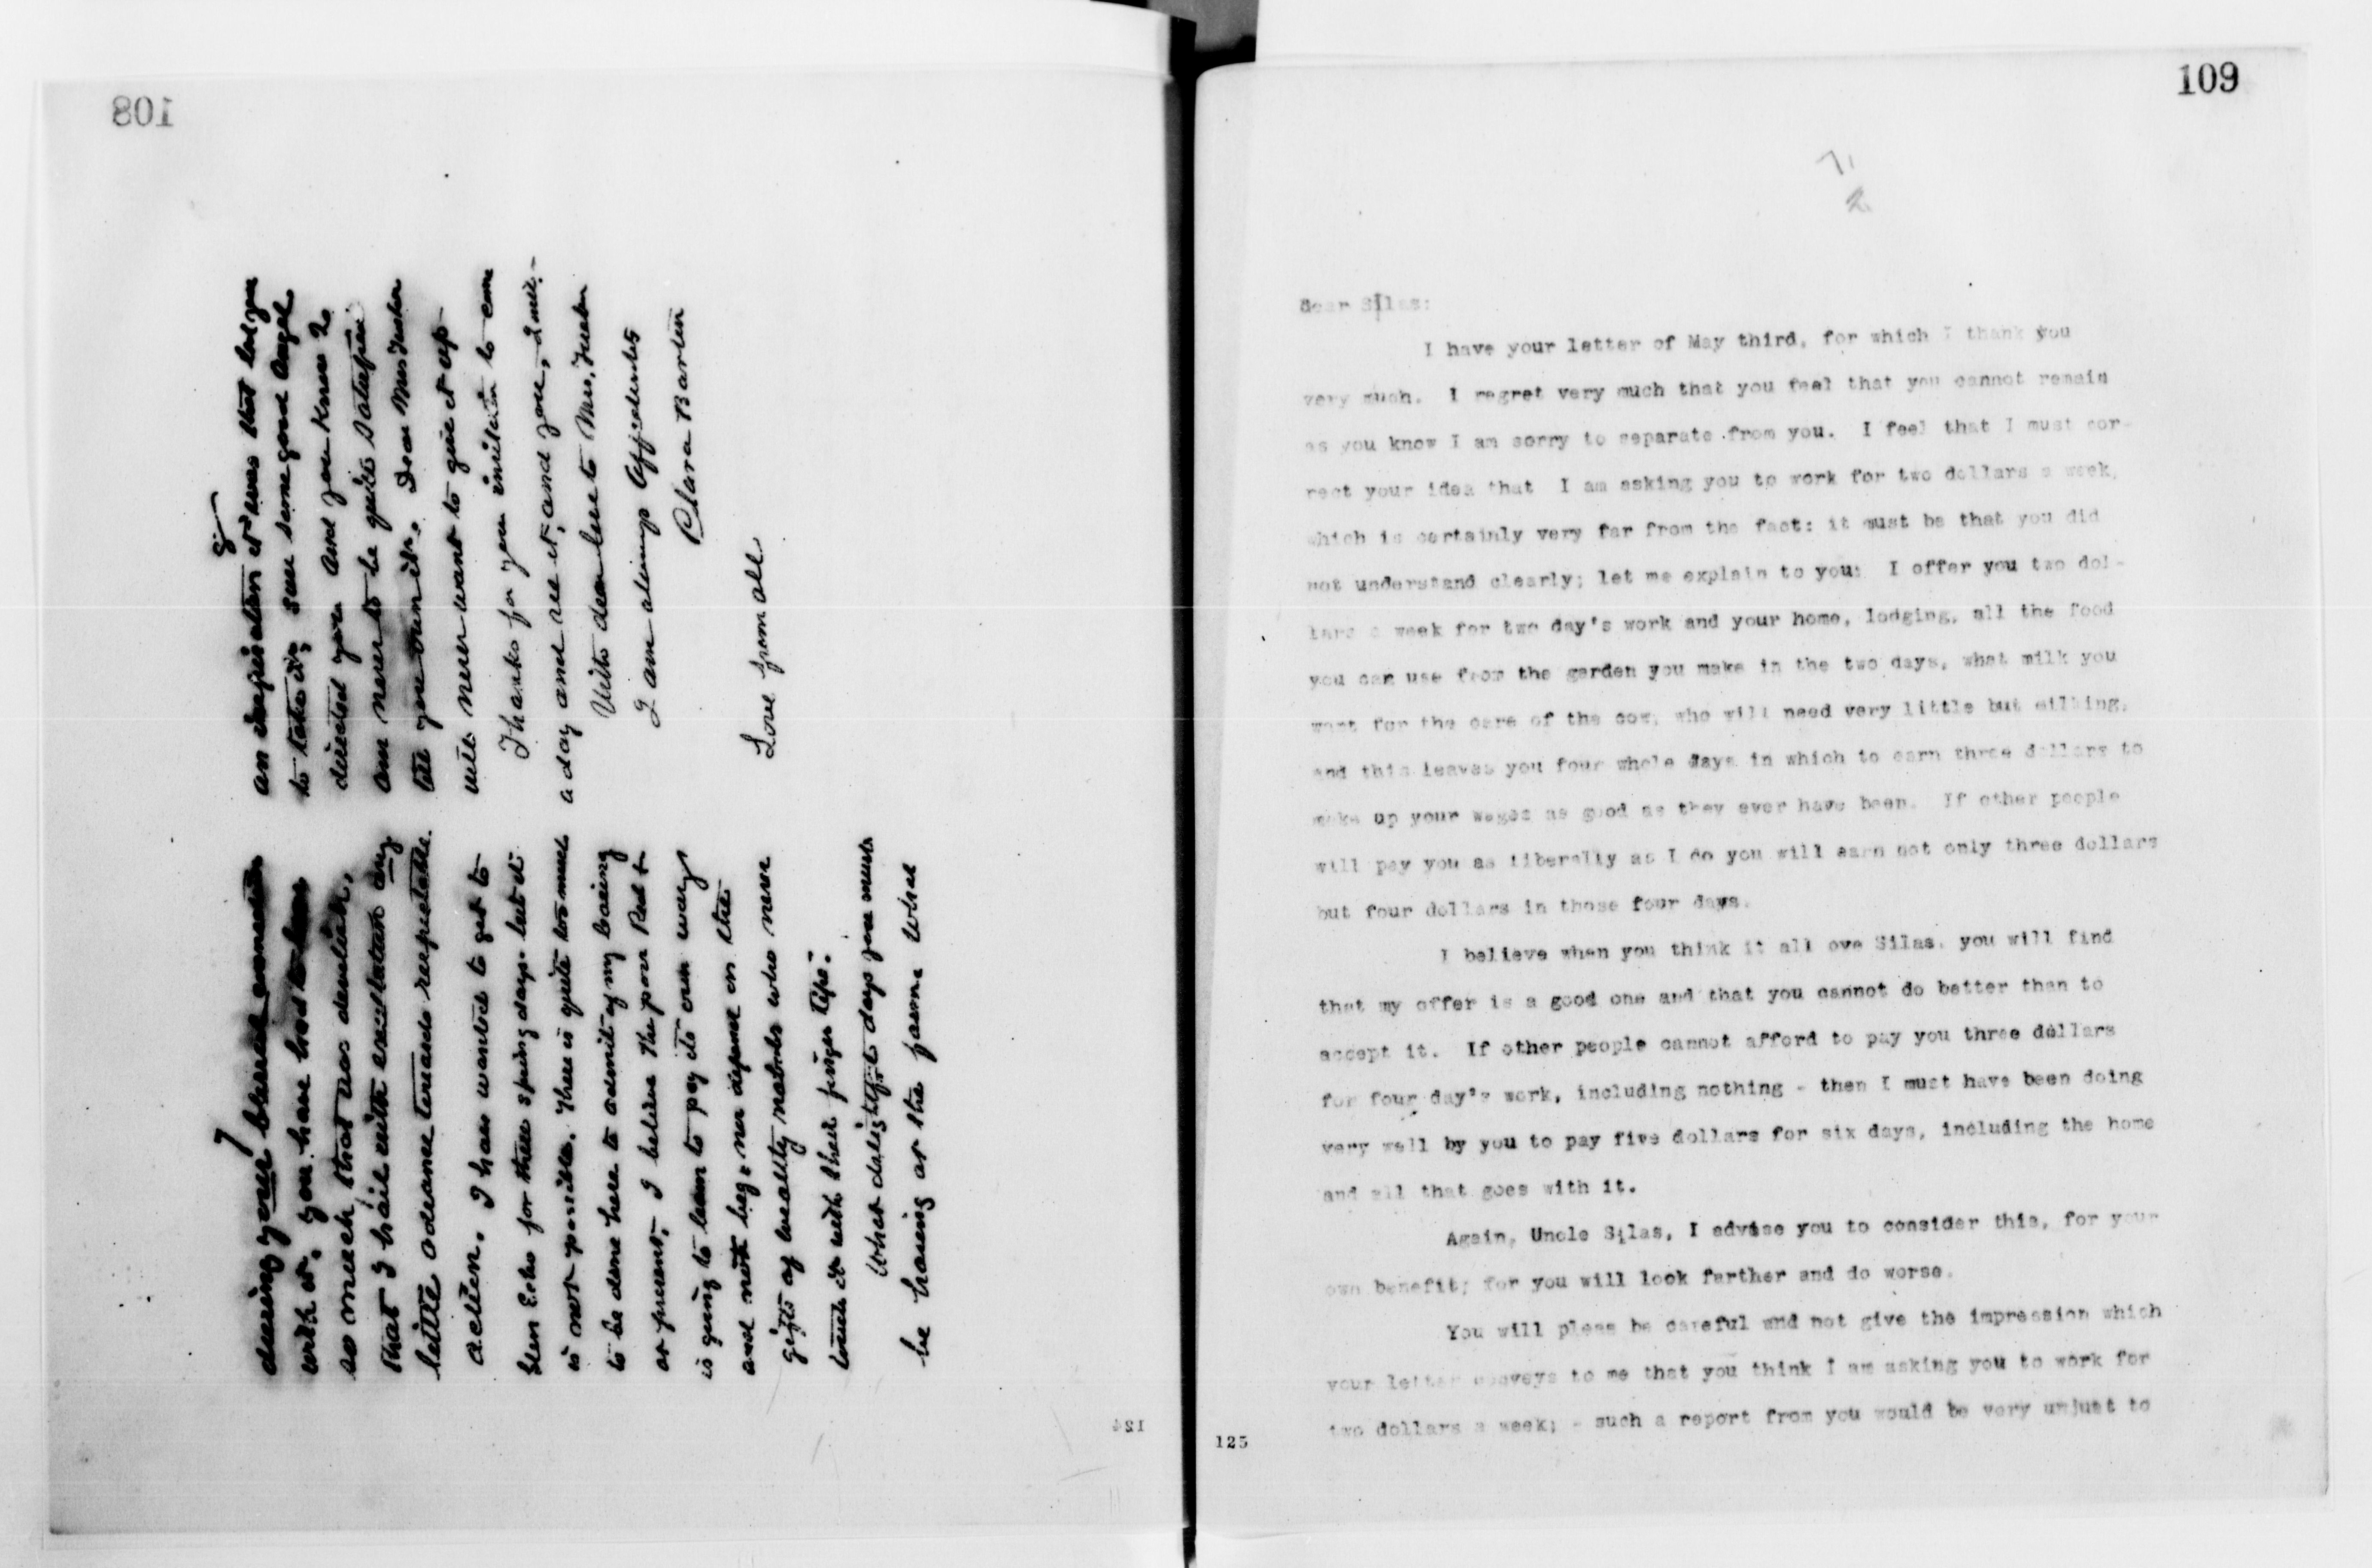 108
7
during your blessed connection
with it, you have had to bear
so much that was devilish,
that I hail with exultation any
little advance towards respectable
action. I have wanted to get to
Glen Echo for these spring days but it
is not possible. There is quite too much
to be done here to admit of my leaving
at present. I believe the poor Red +
is going to learn to pay its own way
and not beg, nor depend on the
gifts of wealthy nabobs who never
touch it with their finger tips.
What delightful days you must
be having at the farm. What
8
an inspiration it was that led you
to take it, sure some good angel
directed you and you know I
am never to be quite satisfied
till you own it. Dear Mrs
will never want to give it up—
Thanks for your invitation to come
a day and see it, and you, I will.—
With dear love to Mrs.
I am always affectionately
Clara Barton
Love from all
124
109
71
2
Dear Silas:
I have your letter of May third, for which I thank you
very much. I regret very much that you feel that you cannot remain
as you know I am sorry to separate from you. I feel that I must cor-
rect your idea that I am asking you to work for two dollars a week,
which is certainly very far from the fact: it must be that you did
not understand clearly; let me explain to you: I offer you two dol-
lars a week for two day's work and your home, lodging, all the food
you can use from the garden you make in the two days, what milk you
want for the care of the cow, who will need very little but milking,
and this leaves you four whole days in which to earn three dollars to
make up your wages as good as they ever have been. If other people
will pay you as liberally as I do you will earn not only three dollars
but four dollars in those four days.
I believe when you think it all ove Silas, you will find
that my offer is a good one and that you cannot do better than to
accept it. If other people cannot afford to pay you three dollars
for four day's work, including nothing - then I must have been doing
very well by you to pay five dollars for six days, including the home
and all that goes with it.
Again, Uncle Silas, I advise you to consider this, for your
own benefit; for you will look farther and do worse.
You will pleas be careful and not give the impression which
your letter conveys to me that you think I am asking you to work for
two dollars a week; - such a report from you would be very unjust to
125